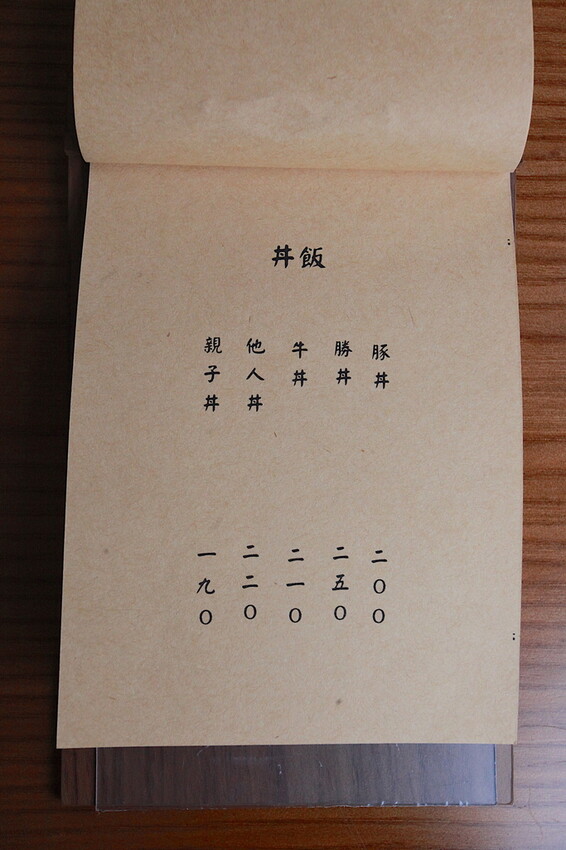 丼飯
豚丼
勝丼
牛丼
他人丼
親子丼
二〇〇
二五〇
二一〇
二二〇
一九〇